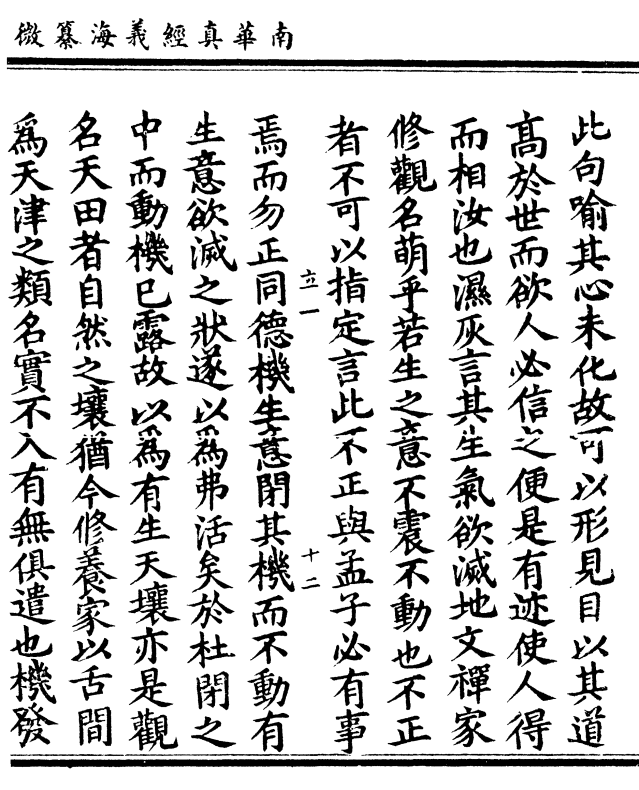 南華真經義海纂微
此句喻其心未化故可以形見目以其道
髙於世而欲人必信之便是有迹使人得
而相汝也濕灰言其生氣欲滅地文禪家
修觀名萌乎若生之意不震不動也不正
者不可以指定言此不正與孟子必有事
立一
十二
焉而勿正同德機生意閉其機而不動有
生意欲滅之狀遂以為弗活矣於杜閉之
中而動機已露故以為有生天壤亦是觀
名天田者自然之壤猶今修養家以舌間
爲天津之類名實不入有無俱遣也機發